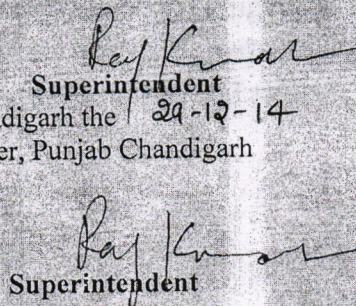 Raj Kumar
Superintendent
digarh the 29-12-14
er, Punjab Chandigarh
Raj Kumar
Superintendent